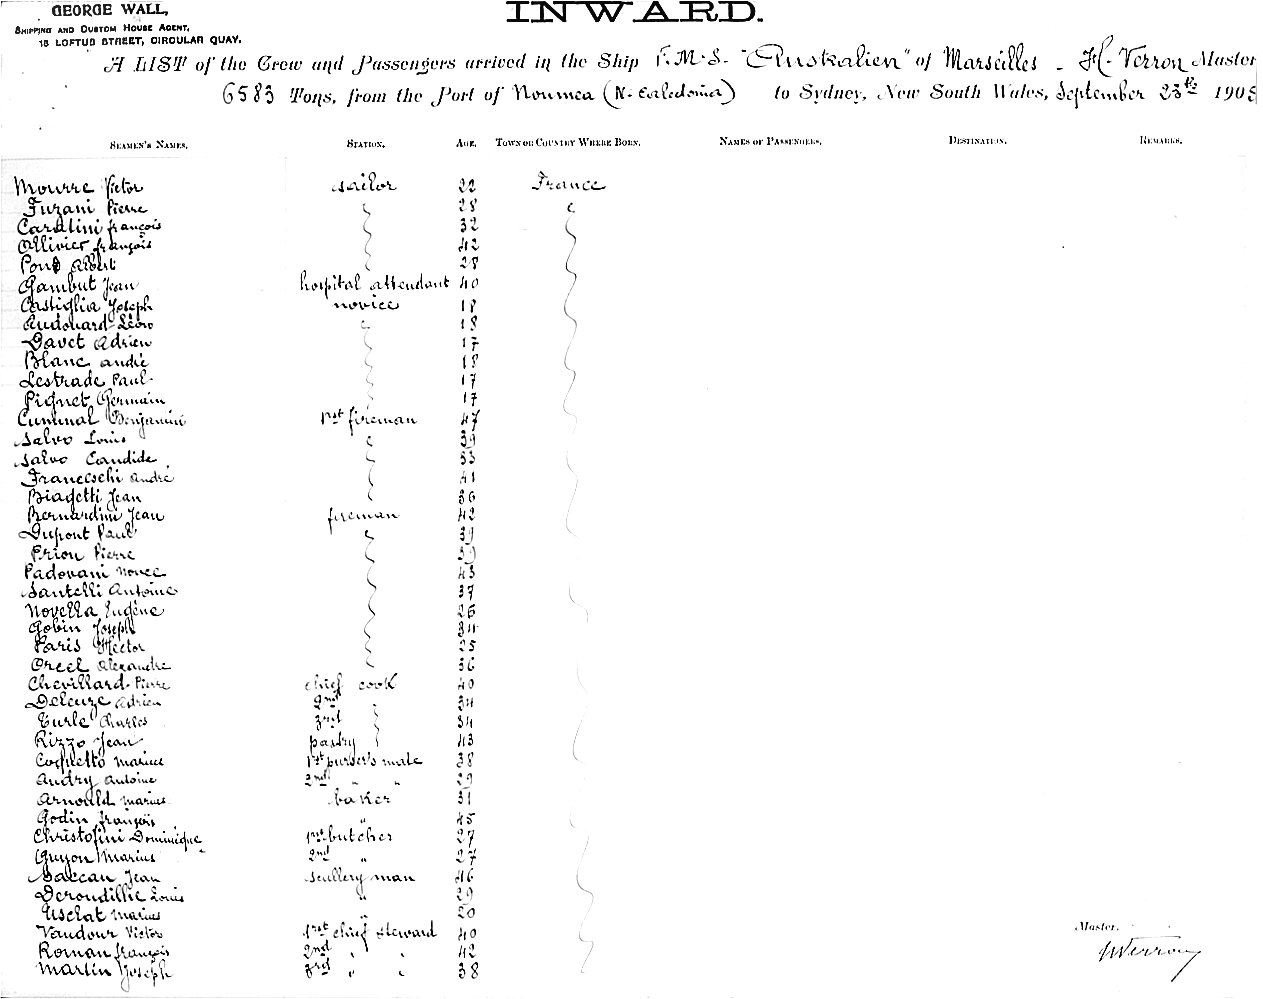 GEORGE WALL,
SHIPPING AND CUSTOM HOUSE AGENT,
18 LOFTUS STREET, CIRCULAR QUAY.
INWARD.
A LIST of the Crew and Passengers arrived in the Ship F.M.S. "Australien" of Marseilles - H. Verron Master
6583 Tons, from the Port of Noumea (N. Caledonia) to Sydney, New South Wales, September 23th 1905
SEAMEN'S NAMES. STATION. AGE. TOWN OR COUNTRY WHERE BORN. NAMES OF PASSENGERS. DESTINATION. REMARKS.
Mourre Victor sailor 22 France
Fuzani Pierre " 28 "
Caratini françois " 32
Ollivier françois " 42
Pons Albert " 28
Gambut Jean hospital attendant 40
Castiglia Joseph novice 18
Audouard Léon " 18
Davet Adrien " 17
Blanc andré " 18
Lestrade Paul " 17
Piquet Germain " 17
Cuminal Benjamin 1st fireman 47
Salvo Louis " 39
Salvo Candide " 33
Franceschi andré " 41
Biagetti Jean " 36
Bernardini Jean fireman 42
Dupont Paul " 39
Prion Pierre " 39
Padovani " 43
Santelli Antoine " 37
Novella Eugène " 26
Gobin Joseph " 34
Paris Hector " 25
Orcel Alexandre " 36
Chevillard Pierre chief cook 40
Deleuze Adrien 2nd " 34
Turle Charles 3rd " 34
Rizzo Jean pastry " 43
Coquetto Marius 1st purser's mate 38
Audry Antoine 2nd " " 29
Arnould Marius baker 31
Godin françois " 45
Christofini Dominique 1st butcher 27
Guyon Marius 2nd " 27
Saccan Jean scullery man 46
Deroudilhe Louis " 29
Usclat Marius " 20
Vaudour Victor 1st chief steward 40
Roman françois 2nd " " 42
Martin Joseph 3rd " " 38
Master.
H Verron